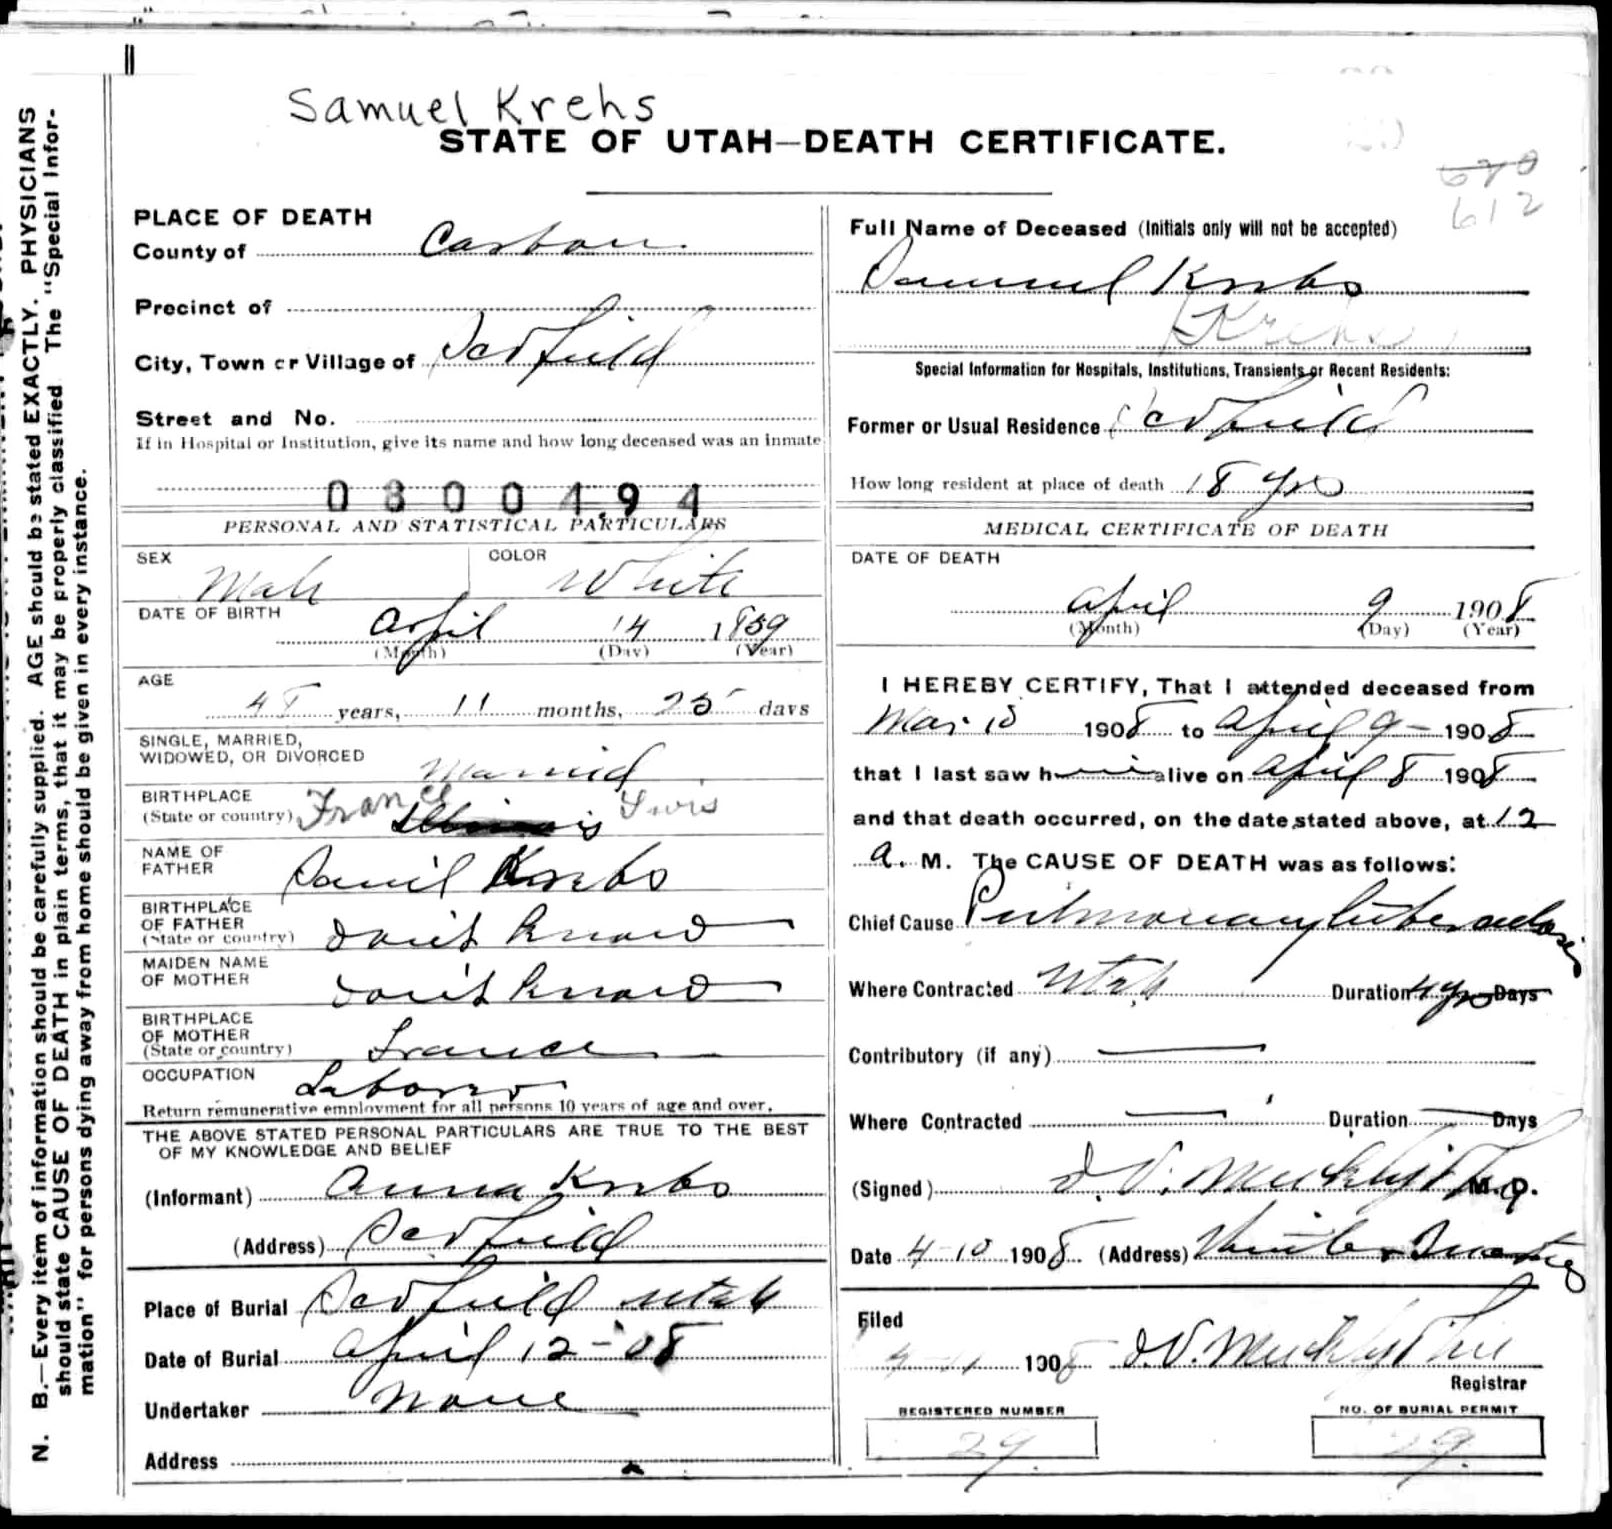 Samuel Krehs
STATE OF UTAH—DEATH CERTIFICATE.
680
612
N. B.—Every item of information should be carefully supplied. AGE should be stated EXACTLY. PHYSICIANS
should state CAUSE OF DEATH in plain terms, that it may be properly classified. The "Special Infor-
mation" for persons dying away from home should be given in every instance.
PLACE OF DEATH
County of Carbon.
Precinct of
City, Town or Village of Scofield
Street and No.
If in Hospital or Institution, give its name and how long deceased was an inmate
0800494
PERSONAL AND STATISTICAL PARTICULARS
SEX Male COLOR White
DATE OF BIRTH April 14 1859
(Month) (Day) (Year)
AGE 48 years, 11 months, 25 days
SINGLE, MARRIED,
WIDOWED, OR DIVORCED Married
BIRTHPLACE
(State or country) France Illinois
NAME OF
FATHER Daniel Krebs
BIRTHPLACE
OF FATHER
(State or country) don't know
MAIDEN NAME
OF MOTHER don't know
BIRTHPLACE
OF MOTHER
(State or country) France
OCCUPATION Laborer
Return remunerative employment for all persons 10 years of age and over.
THE ABOVE STATED PERSONAL PARTICULARS ARE TRUE TO THE BEST
OF MY KNOWLEDGE AND BELIEF
(Informant) Anna Krebs
(Address) Scofield
Place of Burial Scofield Utah
Date of Burial April 12-08
Undertaker None
Address
Full Name of Deceased (Initials only will not be accepted)
Samuel Krebs
Krehs
Special Information for Hospitals, Institutions, Transients or Recent Residents:
Former or Usual Residence Scofield
How long resident at place of death 18 yrs
MEDICAL CERTIFICATE OF DEATH
DATE OF DEATH
April 9 1908
(Month) (Day) (Year)
I HEREBY CERTIFY, That I attended deceased from
Mar. 10 1908 to April 9- 1908
that I last saw him alive on April 8 1908
and that death occurred, on the date stated above, at 12
a. M. The CAUSE OF DEATH was as follows:
Chief Cause Pulmonary tuberculosis
Where Contracted Utah Duration 4 yrs Days
Contributory (if any)
Where Contracted Duration Days
(Signed) M.D.
Date 4-10 1908 (Address) Winter Quarters
Filed
4-11 1908
Registrar
REGISTERED NUMBER
29
NO. OF BURIAL PERMIT
29